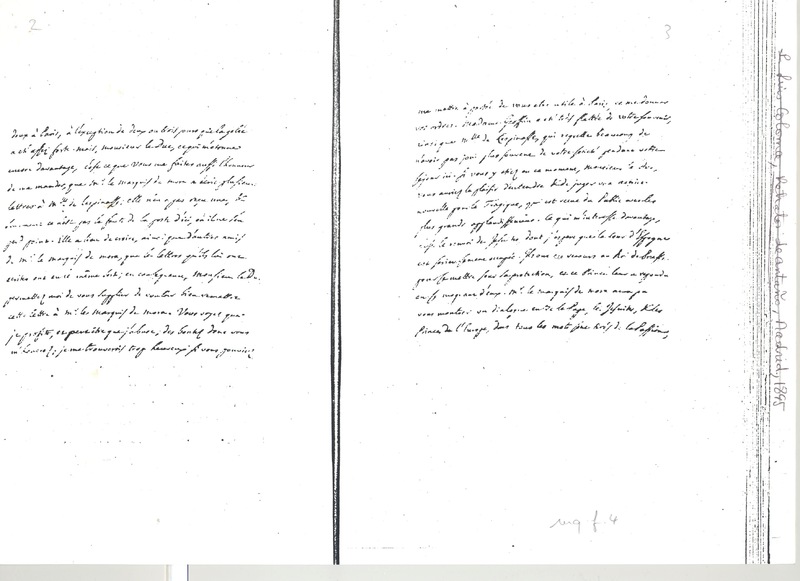 2
deux à Paris, à l'exception de deux ou trois jours où la gelée
a été assez forte. mais, monsieur le Duc, ce qui m'étonne
encore davantage, c'est ce que vous me faites aussi l'honneur
de me mander, que Mr. le marquis de mora a écrit plusieurs
lettres à Mlle. de Lespinasse; elle n'en a pas reçu une,
ce n'est pas la faute de la poste d'ici, où il ne s'en
perd point. Elle a lieu de croire, ainsi que d'autres amis
de Mr. le marquis de mora, que les lettres qu'ils lui ont
écrites ont eu le même sort; en conséquence, Monsieur le Duc
permettez moi de vous supplier de vouloir bien remettre
cette lettre à Mr. le Marquis de mora. Vous voyez que
je profite, et peut être que j'abuse, des bontés dont vous
m'honorez; je me trouverois trop heureux si vous pouviez
3
me mettre à portée de vous être utile à Paris, et me donner
vos ordres. Madame Geoffrin a été très flattée de votre souvenir,
ainsi que Mlle. de Lespinasse, qui regrette beaucoup de
n'avoir pas joui plus souvent de votre société pendant votre
séjour ici. si vous y étiez en ce moment, monsieur le duc,
vous auriez le plaisir d'entendre & de juger un acteur
nouveau pour le Tragique, qui est reçu du Public avec les
plus grands applaudissemens. Ce qui m'intéresse davantage,
c'est le des Jésuites, dont j'espère que la cour d'Espagne
est sérieusement occupée. Ils ont eu recours au Roi de Prusse
pour se mettre sous sa protection, et ce Prince leur a répondu
en se moquant d'eux. Mr. le marquis de mora
vous montrer un dialogue entre le Pape, les Jésuites, & les
Princes de l'Europe, dont tous les mots sont tirés de la Passion,
f. 4
Luis Coloma, Retratos de antaño, Madrid, 1895